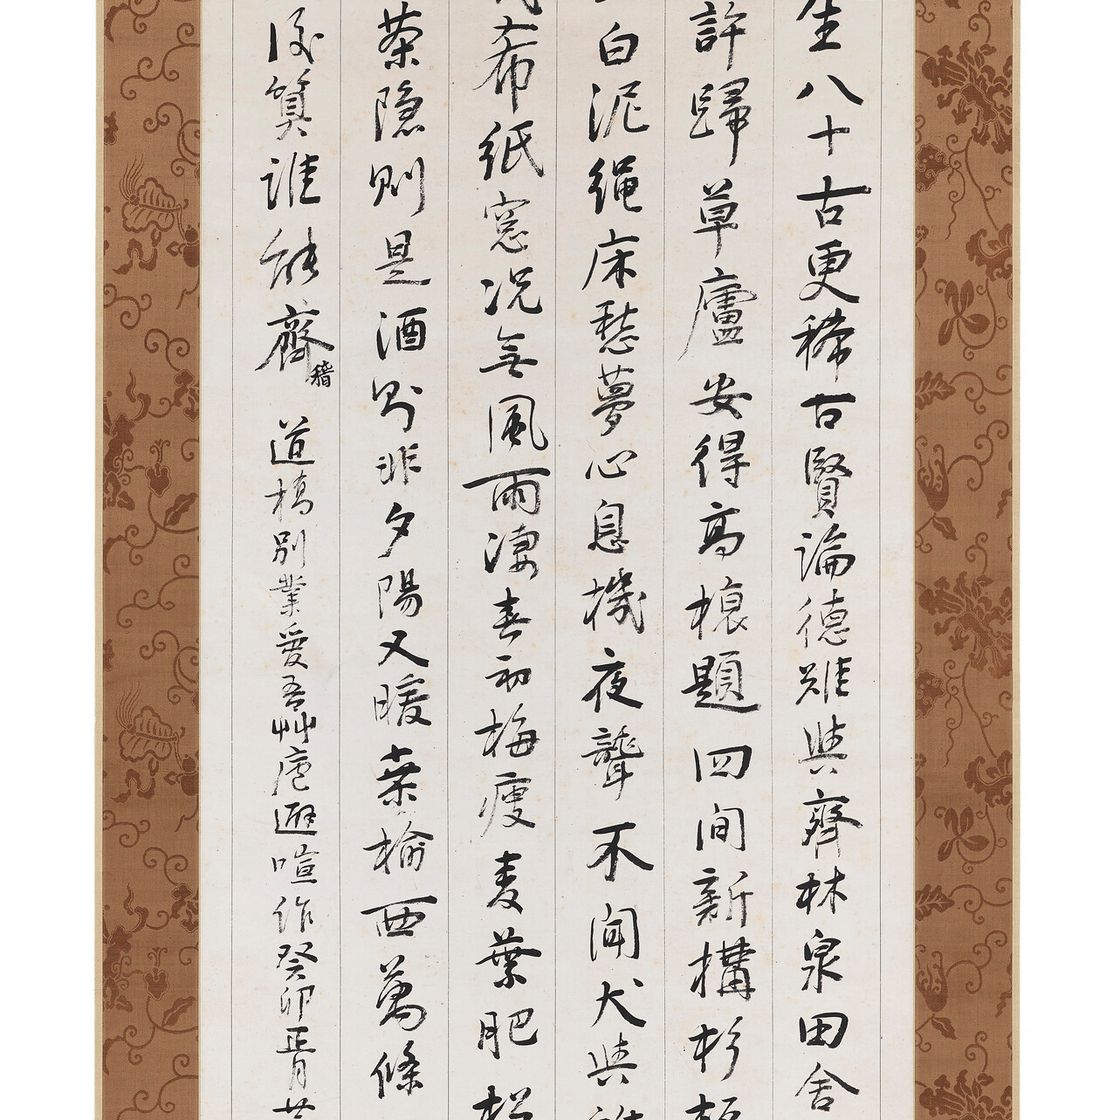 生八十古更稀古賢論德雖與齊林泉田舍
許歸草廬安得高榱題四間新構杉
白泥繩床愁夢心息機夜聾不聞犬與
布紙窓況無風雨凄春初梅瘦麦葉肥松
茶隐則是酒則非夕陽又暖桒榆西萬條
後算誰能齊
稽
道橋別業爰吾艸廬避喧作癸卯正月